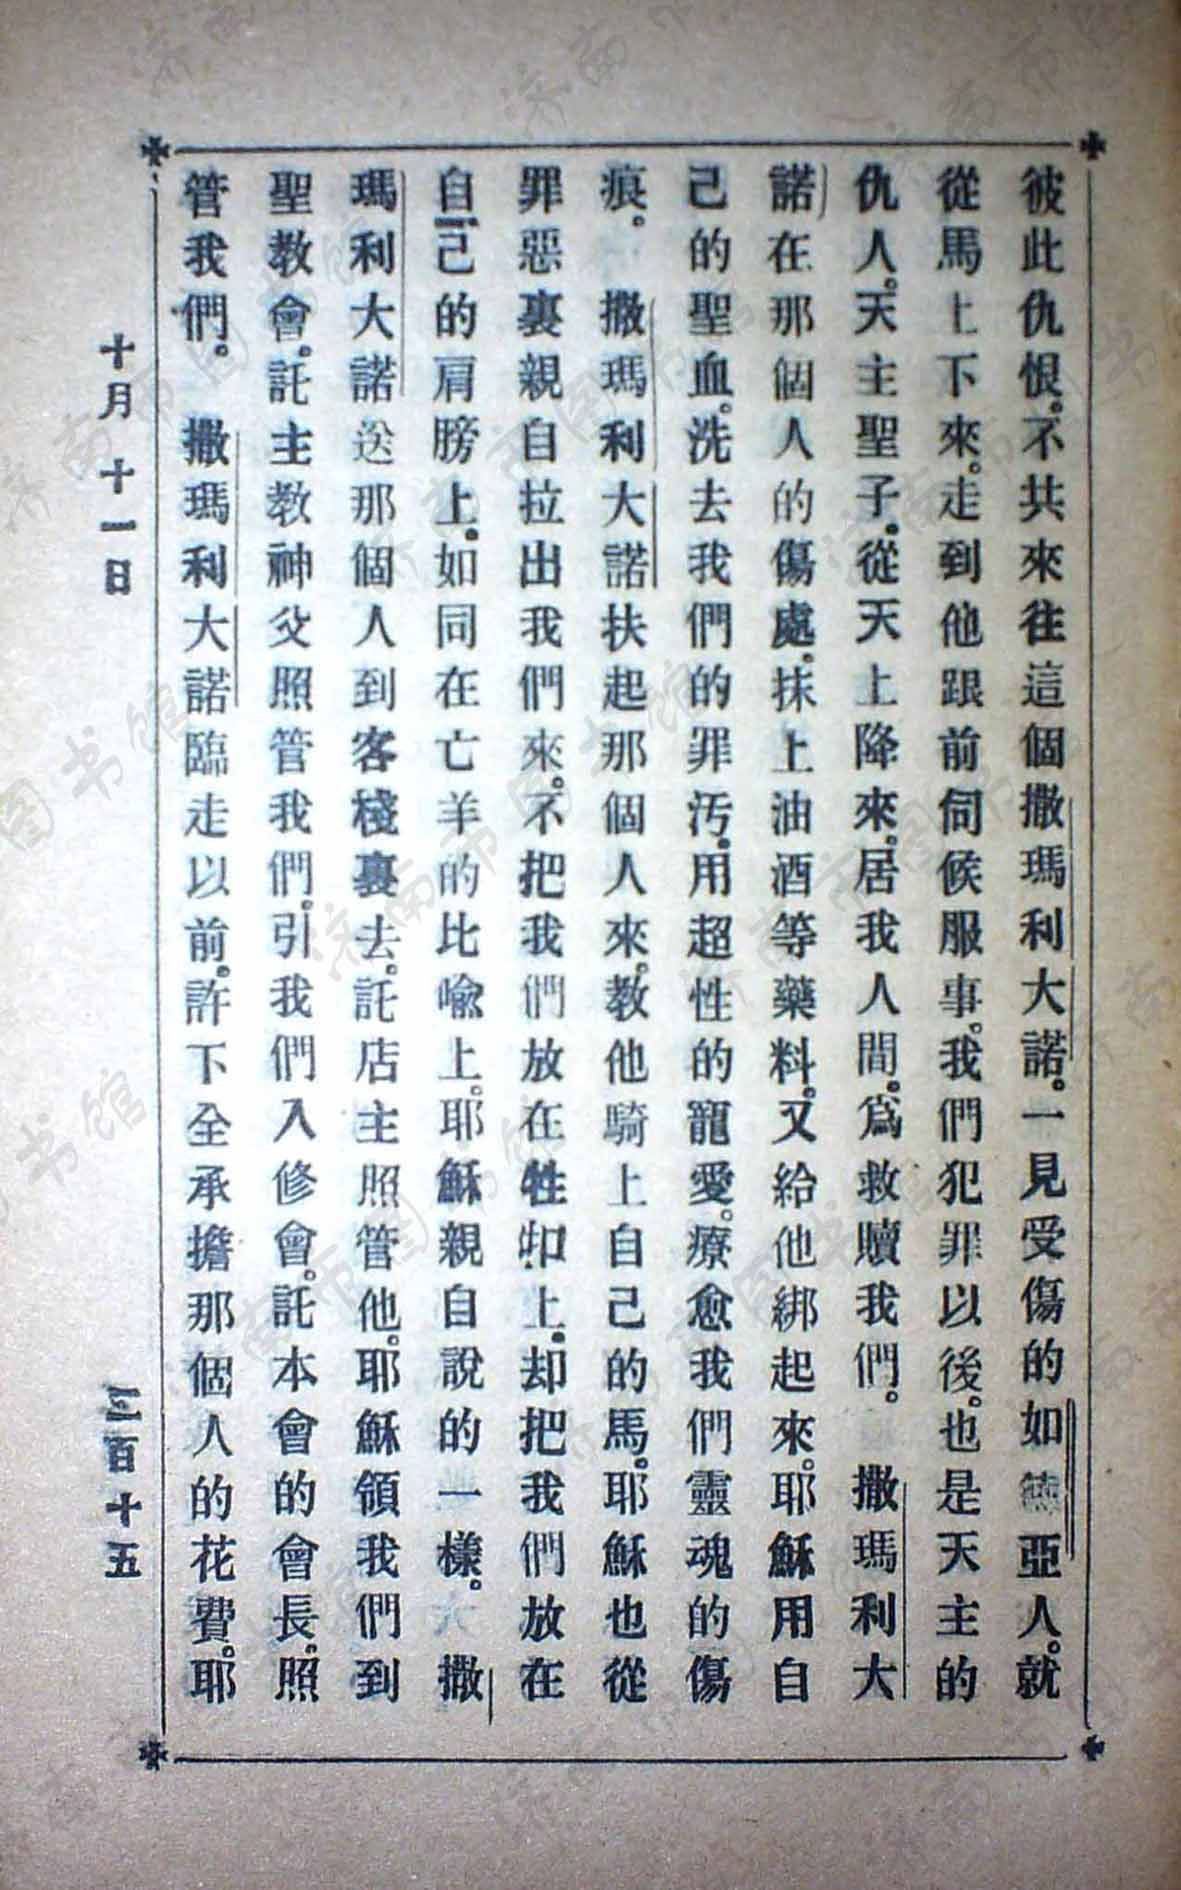 彼此仇恨。不共來往這個撒瑪利大諾。一見受傷的如德亞人。就
從馬上下來。走到他跟前伺候服事。我們犯罪以後。也是天主的
仇人。天主聖子。從天上降來。居我人間。爲救贖我們。 撒瑪利大
諾。在那個人的傷處。抹上油酒等藥料。又給他綁起來。耶穌用自
己的聖血。洗去我們的罪汚。用超性的寵愛。療愈我們靈魂的傷
痕。 撒瑪利大諾扶起那個人來。教他騎上自己的馬。耶穌也從
罪惡裏親自拉出我們來。不把我們放在牲口上。却把我們放在
自己的肩膀上。如同在亡羊的比喻上。耶穌親自說的一樣。 撒
瑪利大諾送那個人到客棧裏去。託店主照管他。耶穌領我們到
聖教會。託主教神父照管我們。引我們入修會。託本會的會長。照
管我們。 撒瑪利大諾臨走以前。許下全承擔那個人的花費。耶
十月十一日
三百十五
济南市图书馆